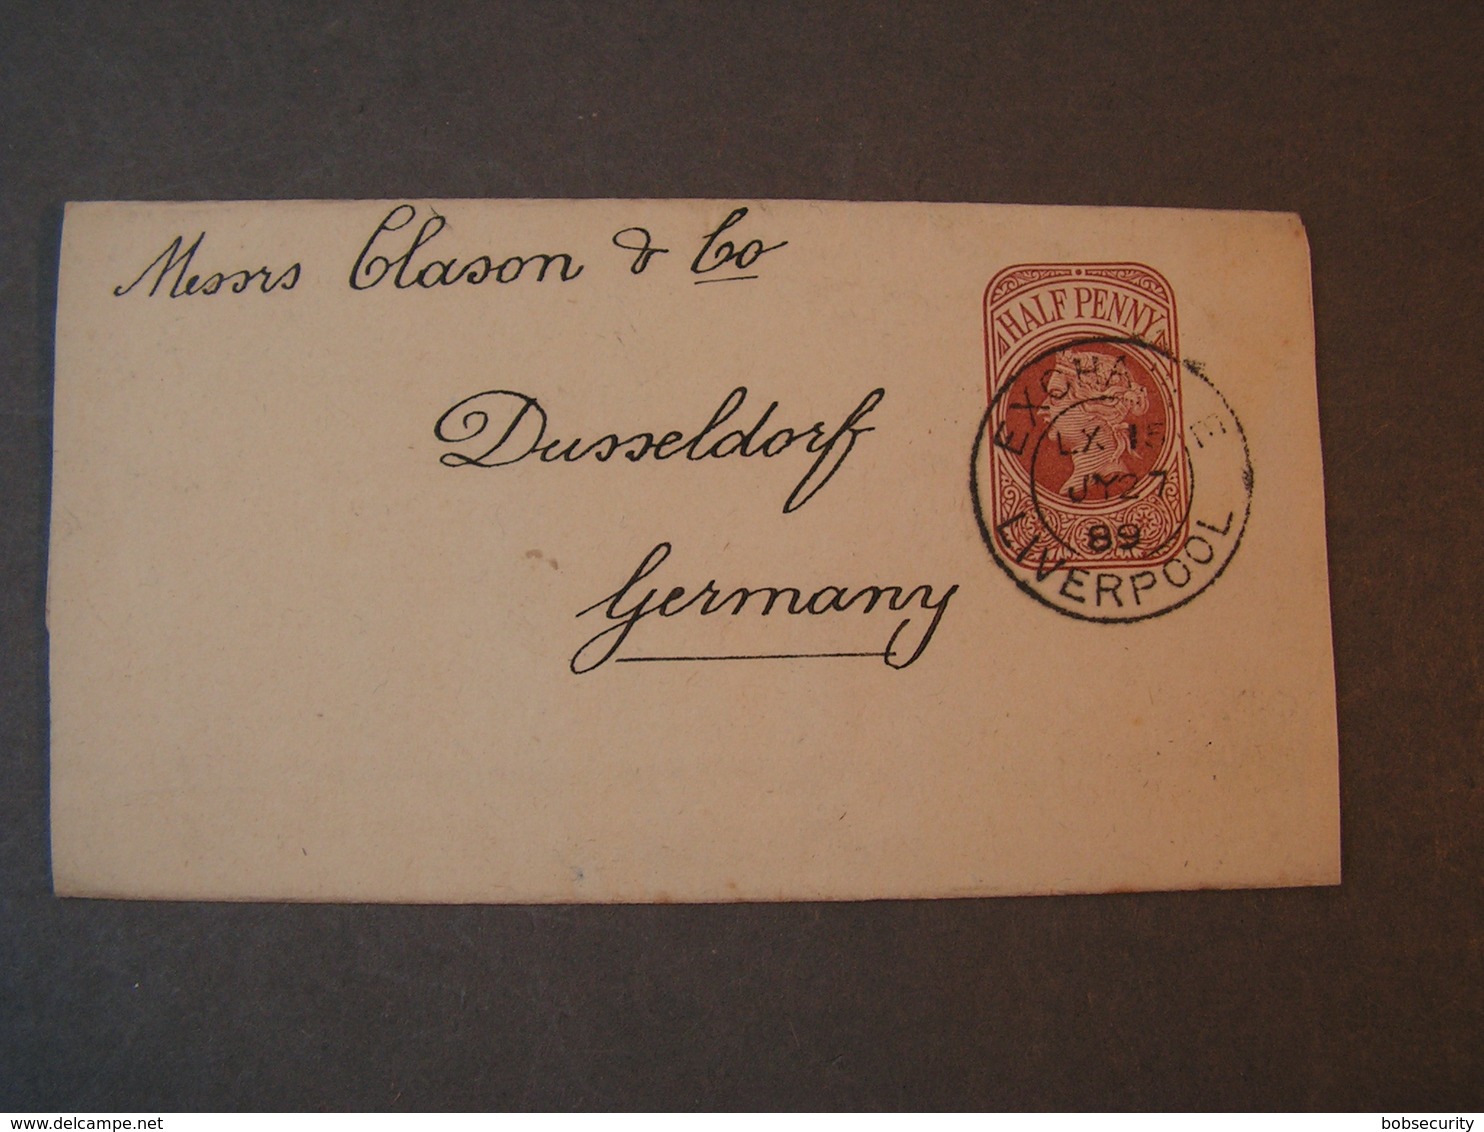 Messrs Clason & Co
Dusseldorf
Germany
HALF PENNY
LX 15
JY 27
89
LIVERPOOL
delcampe.net
bobsecurity